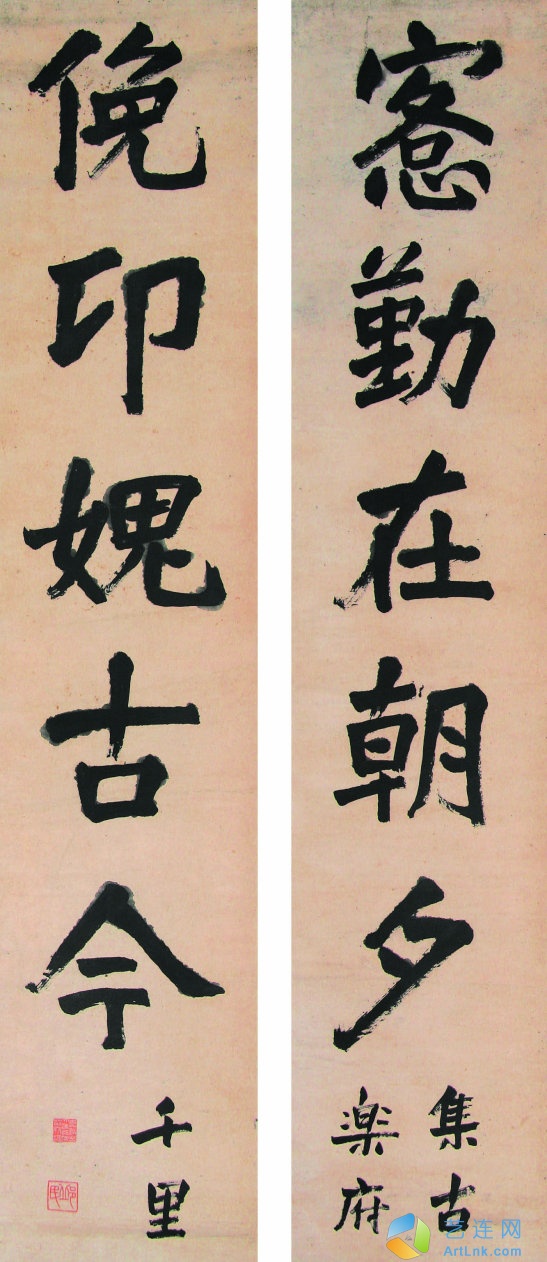 愙勤在朝夕
集古
楽府
俛卬媿古今
千里
艺连网
ArtLnk.com